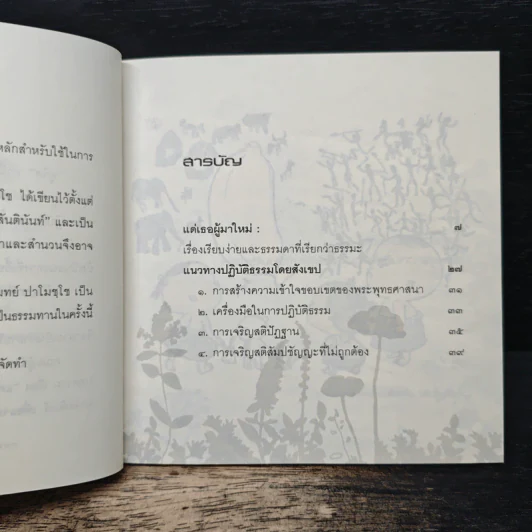 หลักสำหรับใช้ในการ
ช ได้เขียนไว้ตั้งแต่
สันตินันท์” และเป็น
าและสำนวนจึงอาจ
มทย์ ปาโมชฺโช เป็น
ป็นธรรมทานในครั้งนี้
จัดทำ
สารบัญ
แด่เธอผู้มาใหม่ : ๗
เรื่องเรียบง่ายและธรรมดาที่เรียกว่าธรรมะ
แนวทางปฏิบัติธรรมโดยสังเขป ๒๗
๑. การสร้างความเข้าใจขอบเขตของพระพุทธศาสนา ๓๑
๒. เครื่องมือในการปฏิบัติธรรม ๓๓
๓. การเจริญสติปัฏฐาน ๓๕
๔. การเจริญสติสัมปชัญญะที่ไม่ถูกต้อง ๓๙